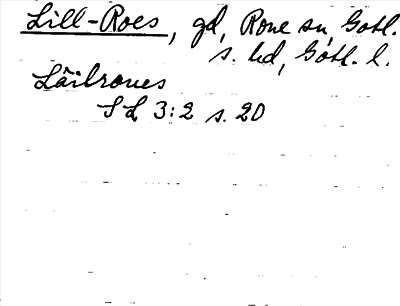 Lill-Roes, gd, Rone sn, Gotl.
s. hd, Gotl. l.
Läilroues
SL 3:2 s. 20